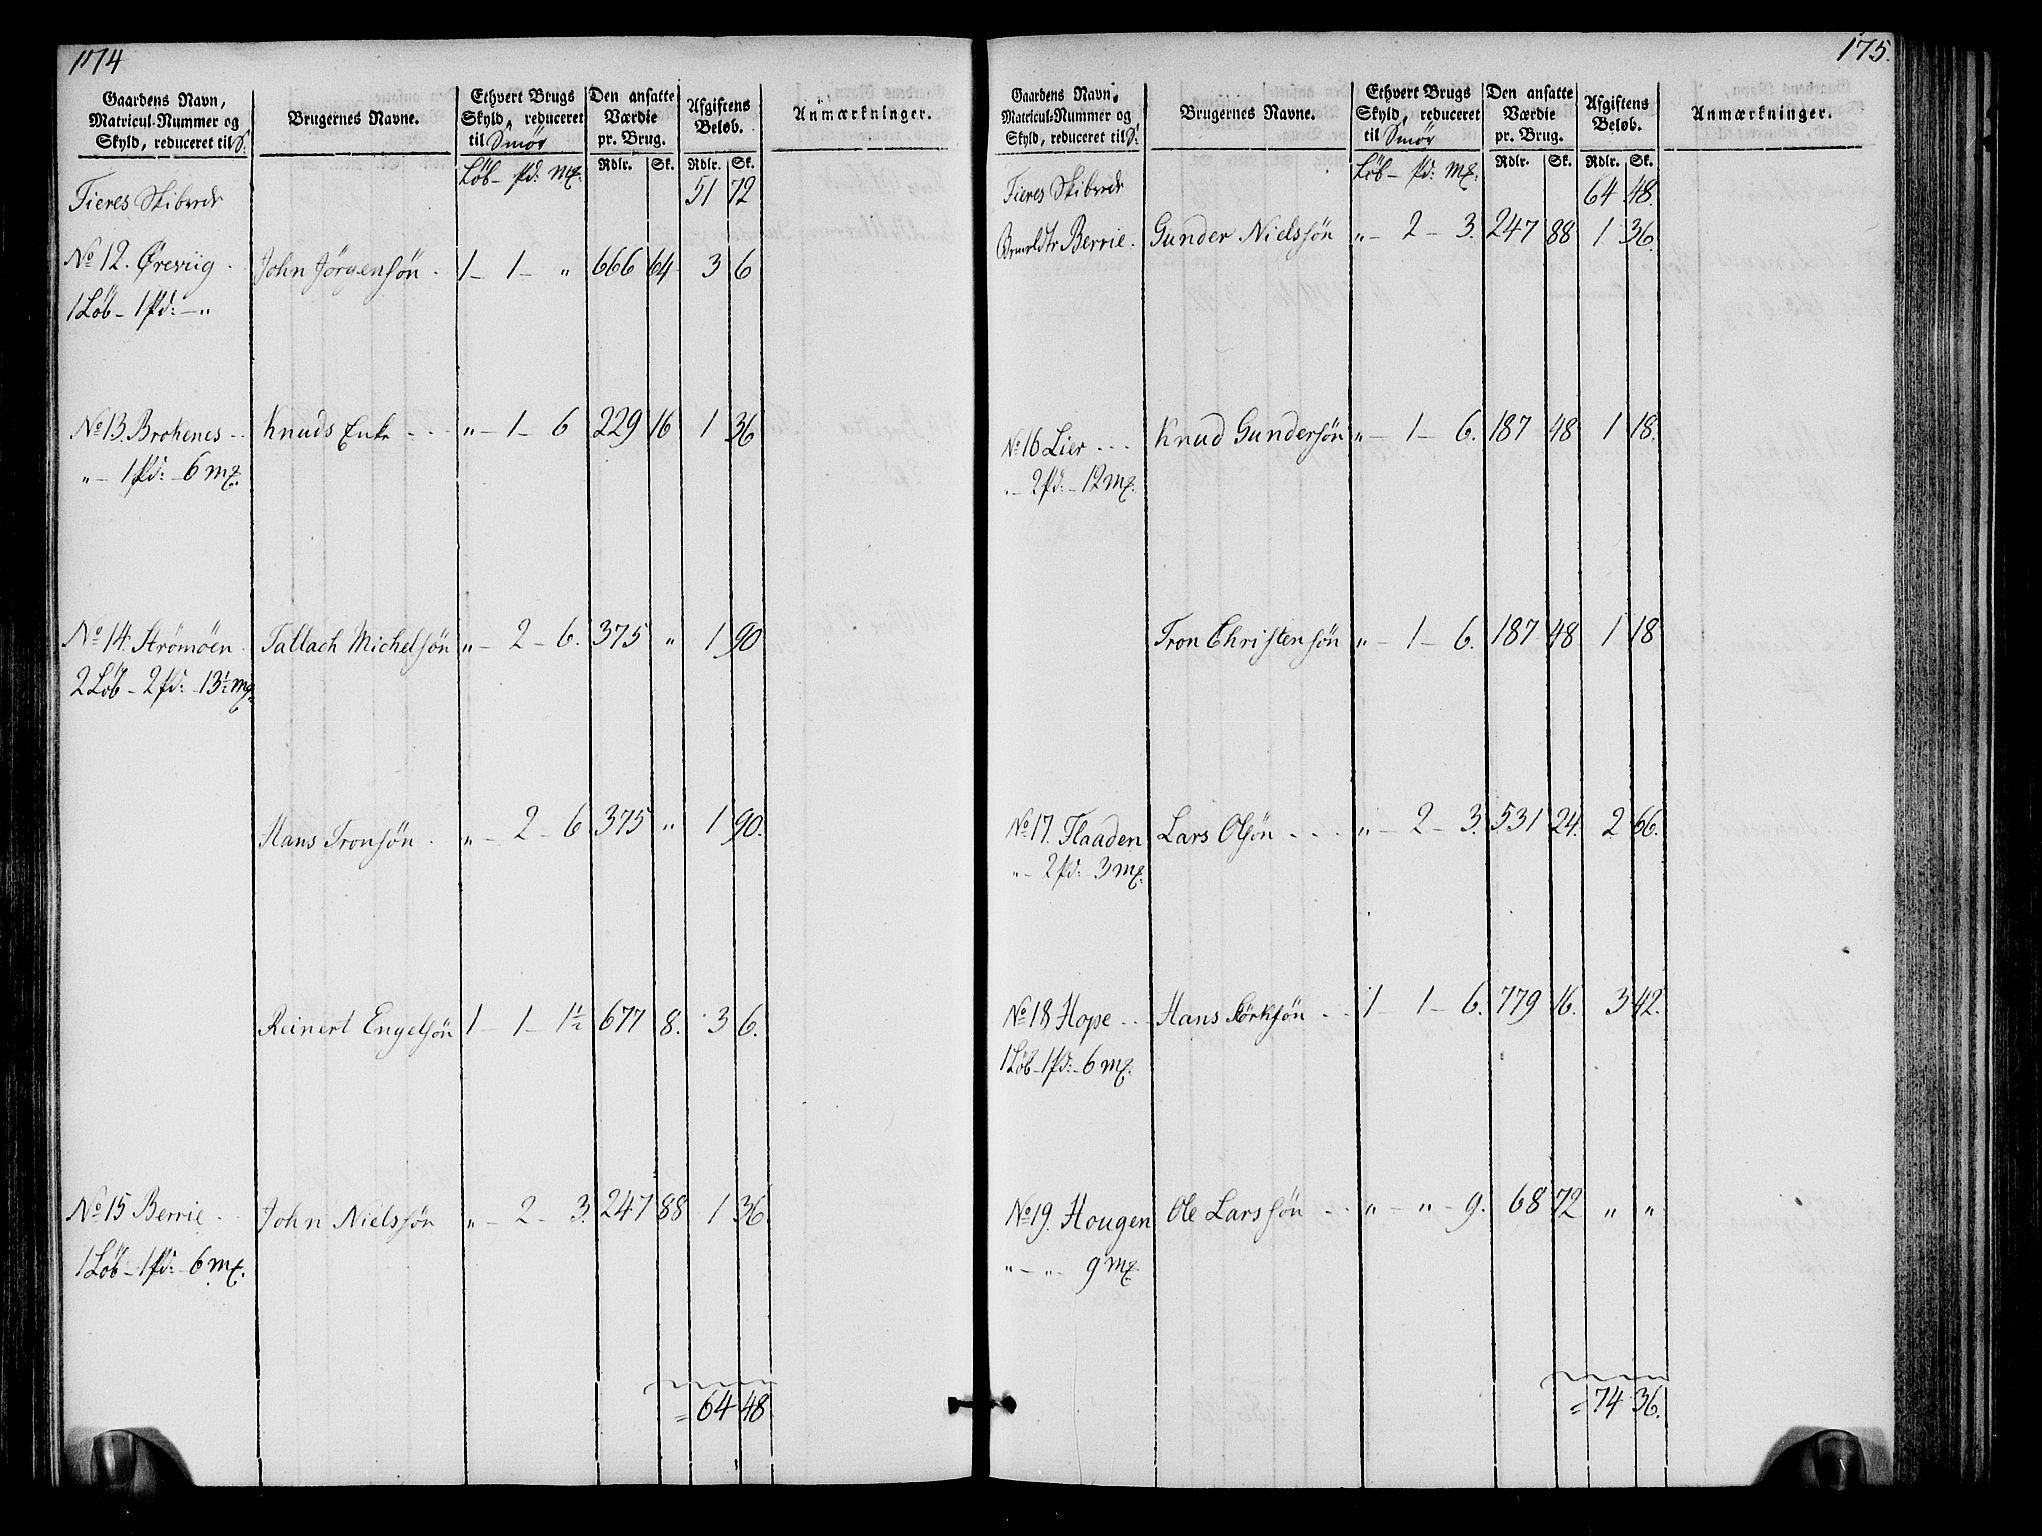 174
Gaardens Navn, Matricul-Nummer og Skyld, reduceret til S:
Brugernes Navne.
Ethvert Brugs Skyld, reduceret til Smör
Den ansatte Værdie pr. Brug.
Afgiftens Beløb.
Anmærkninger.
Löb - pd: - mƺ. Rdlr. Sk. Rdlr. Sk.
Fieres Skibrede 51 72
No 12. Öreviig. John Jörgensön. 1 - 1 - „ 666 64 3 6
1 Löb - 1 pd: - „
No 13. Brohenes Knuds Enke „ - 1 - 6 229 16 1 36
„ - 1 pd: - 6 mƺ.
No 14. Strömöen. Tallach Michelsön „ - 2 - 6. 375 „ 1 90
2 Löb - 2 pd: - 13½ mƺ.
Hans Tronsön. „ - 2 - 6 375 „ 1 90.
Reinert Engelsön 1 - 1 - 1½ 677 8. 3 6.
No 15 Berrie John Nielssön „ - 2 - 3. 247 88 1 36
1 Löb - 1 pd: - 6 mƺ.
= 64 48
175.
Gaardens Navn, Matricul-Nummer og Skyld, reduceret til S:
Brugernes Navne.
Ethvert Brugs Skyld, reduceret til Smör
Den ansatte Værdie pr. Brug.
Afgiftens Beløb.
Anmærkninger.
Löb - pd: mƺ. Rdlr. Sk. Rdlr. Sk.
Fieres Skibrede 64 48.
Berrie. Gunder Nielssön „ - 2 - 3. 247 88 1 36
No 16 Lier Knud Gundersön „ - 1 - 6. 187 48 1 18.
„ - 2 pd: - 12 mƺ.
Tron Christensön „ - 1 - 6. 187 48 1 18
No 17. Flaaden Lars Olsön „ - 2 - 3. 531 24. 2 66.
„ - 2 pd: 3 mƺ.
No 18 Hope Hans 1 1 - 6. 779 16. 3 42.
1 Löb - 1 pd: - 6 mƺ.
No 19. Hougen Ole Larssön „ - „ - 9. 68 72 „ „
„ - „ - 9 mƺ
= 74 36.